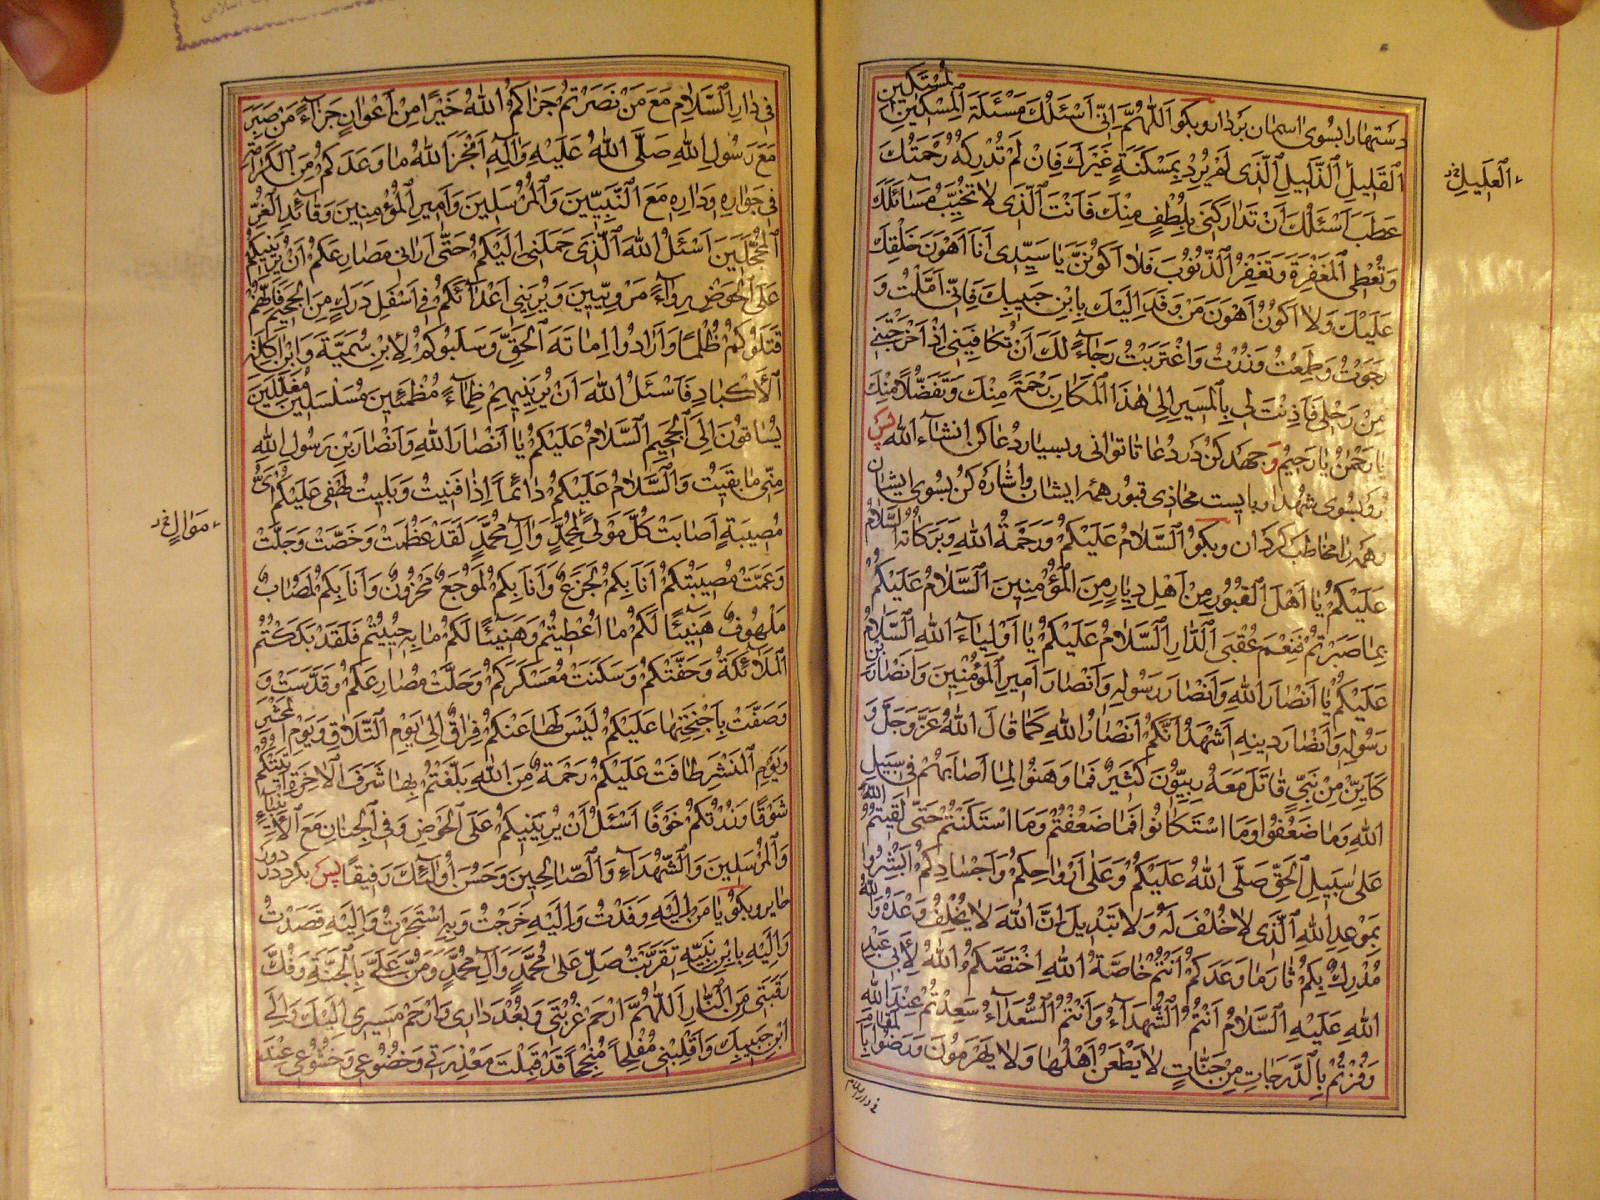 دستهارا بسوی اسمان بردار وبکو اللهم انی اسئلك مسئلة المسکین المستکین
القلیل الذلیل الذی لم یرد بمسکنته غیرك فان لم تدرکه رحمتك
العلیل
عطب اسئلك ان تدارکنی بلطف منك فانت الذی لا تخیب مسائلك
وتعطی المغفرة وتغفر الذنوب فلا اکونن یا سیدی انا اهون خلقك
علیك ولا اکون اهون من وفد الیك بابن حبیبك فانی املت و
رجوت وطمعت وزرت واغتربت رجاء لك ان تکافینی اذ اخرجتنی
من رحلی فاذنت لی بالمسیر الی هذا المکان رحمة منك وتفضلا منك
یا رحمن یا رحیم و جهد کن در دعا تا توانی و بسیار دعا کن انشاء الله پس
رو بسوی شهدا و بایست محاذی قبور همه ایشان واشاره کن بسوی ایشان
وهمه را مخاطب کردان وبکو السلام علیکم ورحمة الله وبرکاته السلام
علیکم یا اهل القبور من اهل دیار من المؤمنین السلام علیکم
بما صبرتم فنعم عقبی الدار السلام علیکم یا اولیاء الله السلام
علیکم یا انصار الله وانصار رسوله وانصار امیر المؤمنین وانصار ابن
رسوله وانصار دینه اشهد انکم انصار الله کما قال الله عز وجل و
کاین من نبی قاتل معه ربیون کثیر فما وهنوا لما اصابهم فی سبیل
الله وما ضعفوا وما استکانوا فما ضعفتم وما استکنتم حتی لقیتم الله
علی سبیل الحق صلی الله علیکم وعلی ارواحکم واجسادکم ابشروا
بموعد الله الذی لا خلف له ولا تبدیل ان الله لا یخلف وعده والله
مدرك بکم ثار ما وعدکم انتم خاصة الله اختصکم الله لابی عبد
الله علیه السلام انتم الشهداء وانتم السعداء سعدتم عند الله
وفزتم بالدرجات من جنات لا یطعن اهلها ولا یهرمون ورضوا بالمقام
فی دار السلام
فی دار السلام مع من نصرتم جزاکم الله خیرا من اعوان جزاء من صبر
مع رسول الله صلی الله علیه واله انجز الله ما وعدکم من الکرامة
فی جواره وداره مع النبیین والمرسلین وامیر المؤمنین وقائد الغر
المحجلین اسئل الله الذی حملنی الیکم حتی ارانی مصارعکم ان یرینیکم
علی الحوض رواء مرویین ویرینی اعدائکم فی اسفل درك من الجحیم فانهم
قتلوکم ظلما وارادوا اماتة الحق وسلبوکم لابن سمیة وابن اکلة
الاکباد فاسئل الله ان یرینیهم ظماء مظمئین مسلسلین مغللین
یساقون الی الجحیم السلام علیکم یا انصار الله وانصار بن رسول الله
منی ما بقیت والسلام علیکم دائما اذا فنیت وبلیت لهفی علیکم ای
مصیبة اصابت کل مولی لمحمد وال محمد لقد عظمت وخصت وجلت
موال
وعمت مصیبتکم انا بکم لجزع وانا بکم لموجع محزون وانا بکم لمصاب
ملهوف هنیئا لکم ما اعطیتم وهنیئا لکم ما به حییتم فلقد بکتکم
الملائکة وحفتکم وسکنت معسکرکم وحلت مصارعکم وقدست و
وصفت باجنحتها علیکم لیس لها عنکم فراق الی یوم التلاق ویوم المحشر
ویوم المنشر طافت علیکم رحمة من الله بلغتم بها شرف الاخرة اتیتکم
شوقا وزرتکم خوفا اسئل ان یرینیکم علی الحوض وفی الجنان مع الانبیاء
والمرسلین والشهداء والصالحین وحسن اولئك رفیقا پس بکرد در دور
حایر وبکو یا من الیه وفدت والیه خرجت وبه استجرت والیه قصدت
والیه بابن نبیه تقربت صل علی محمد وال محمد ومن علی بالجنة وفك
رقبتی من النار اللهم ارحم غربتی وبعد داری وارحم مسیری الیك والی
ابن حبیبك واقلبنی مفلحا منجحا قد قبلت معذرتی وخضوعی وخشوعی عند